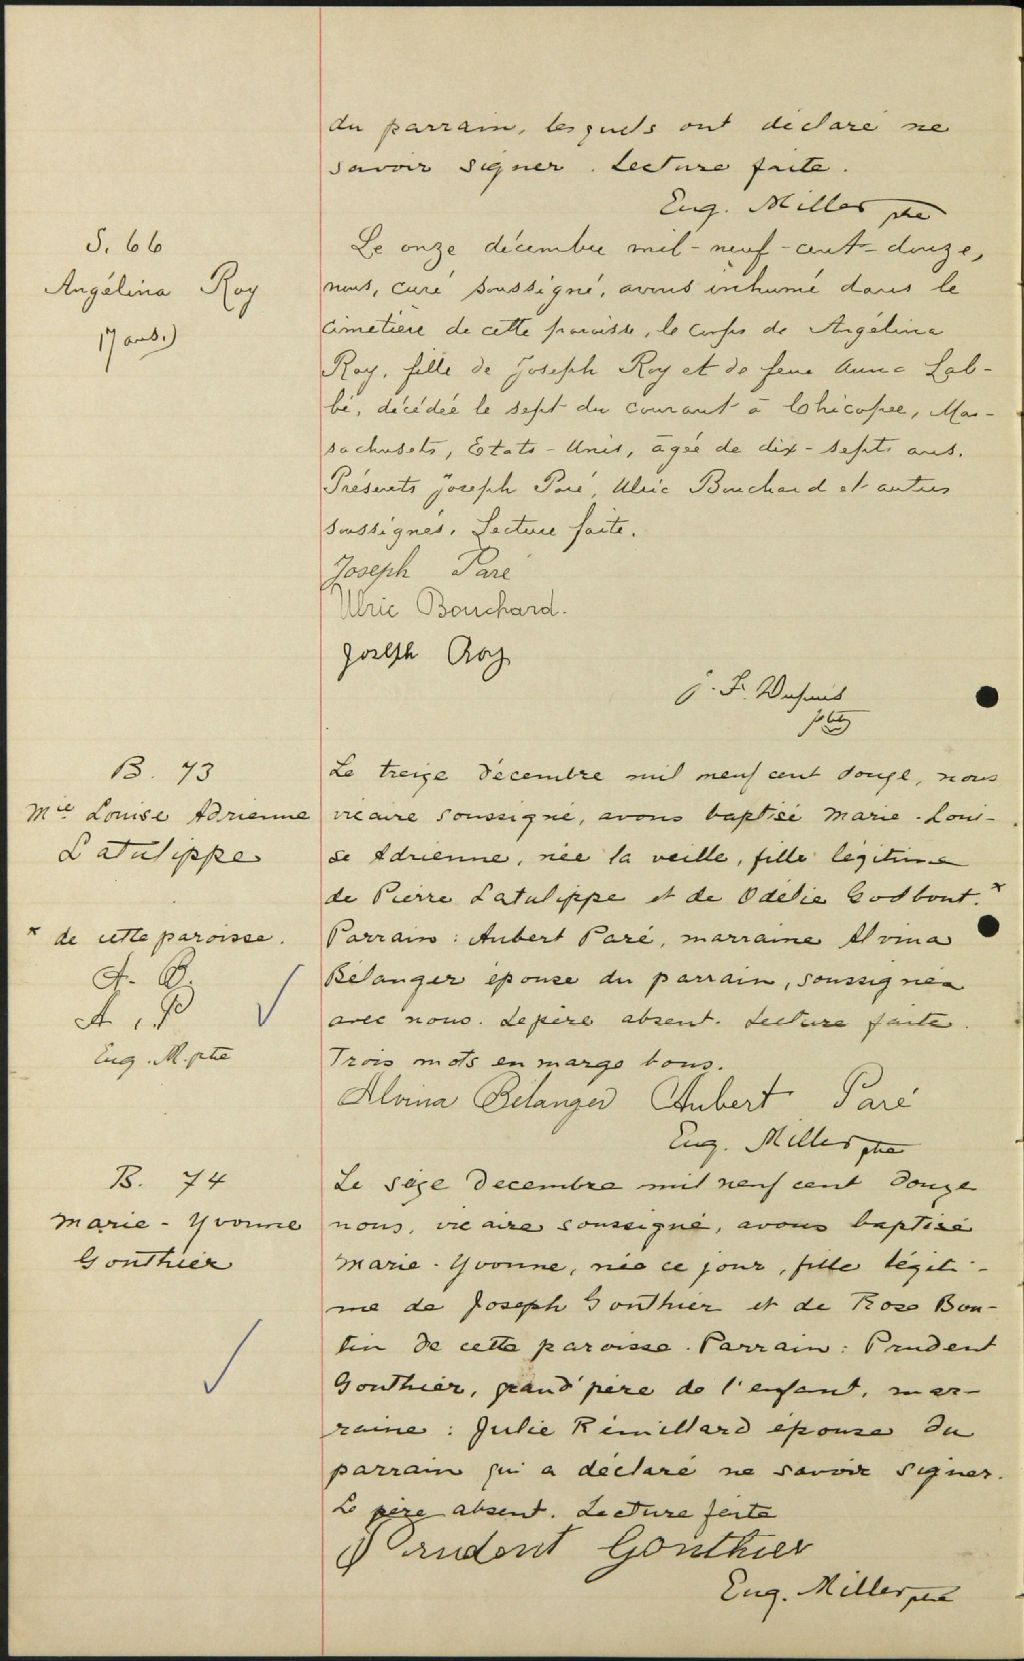 du parrain, lesquels ont déclaré ne
savoir signer. Lecture faite.
Eug. Miller ptre
S. 66
Angélina Roy
17 ans.)
Le onze décembre mil-neuf-cent-douze,
nous, curé soussigné, avons inhumé dans le
cimetière de cette paroisse, le corps de Angélina
Roy, fille de Joseph Roy et de feue Anna Lab-
bé, décédée le sept du courant à Chicopee, Mas-
sachusets, Etats-Unis, âgée de dix-sept ans.
Présents Joseph Paré, Ulric Bouchard et autres
soussignés. Lecture faite.
Joseph Paré
Ulric Bouchard.
Joseph Roy
J. F. Dupuis
ptre
B. 73
Mie Louise Adrienne
Latulippe
* de cette paroisse.
A. B.
A. P
Eug. M. ptre
Le treize décembre mil neuf cent douze, nous
vicaire soussigné, avons baptisé Marie-Loui-
se Adrienne, née la veille, fille légitime
de Pierre Latulippe et de Odélie Godbout.*
Parrain : Aubert Paré, marraine Alvina
Bélanger épouse du parrain, soussignés
avec nous. Le père absent. Lecture faite.
Trois mots en marge bons.
Alvina Bélanger Aubert Paré
Eug. Miller ptre
B. 74
Marie-Yvonne
Gonthier
Le seize Decembre mil neuf cent douze
nous, vicaire soussigné, avons baptisé
Marie-Yvonne, née ce jour, fille légiti-
me de Joseph Gonthier et de Rose Bou-
tin de cette paroisse. Parrain : Prudent
Gonthier, grand'père de l'enfant, mar-
raine : Julie Rémillard épouse du
parrain qui a déclaré ne savoir signer.
Le père absent. Lecture faite
Prudent Gonthier
Eug. Miller ptre